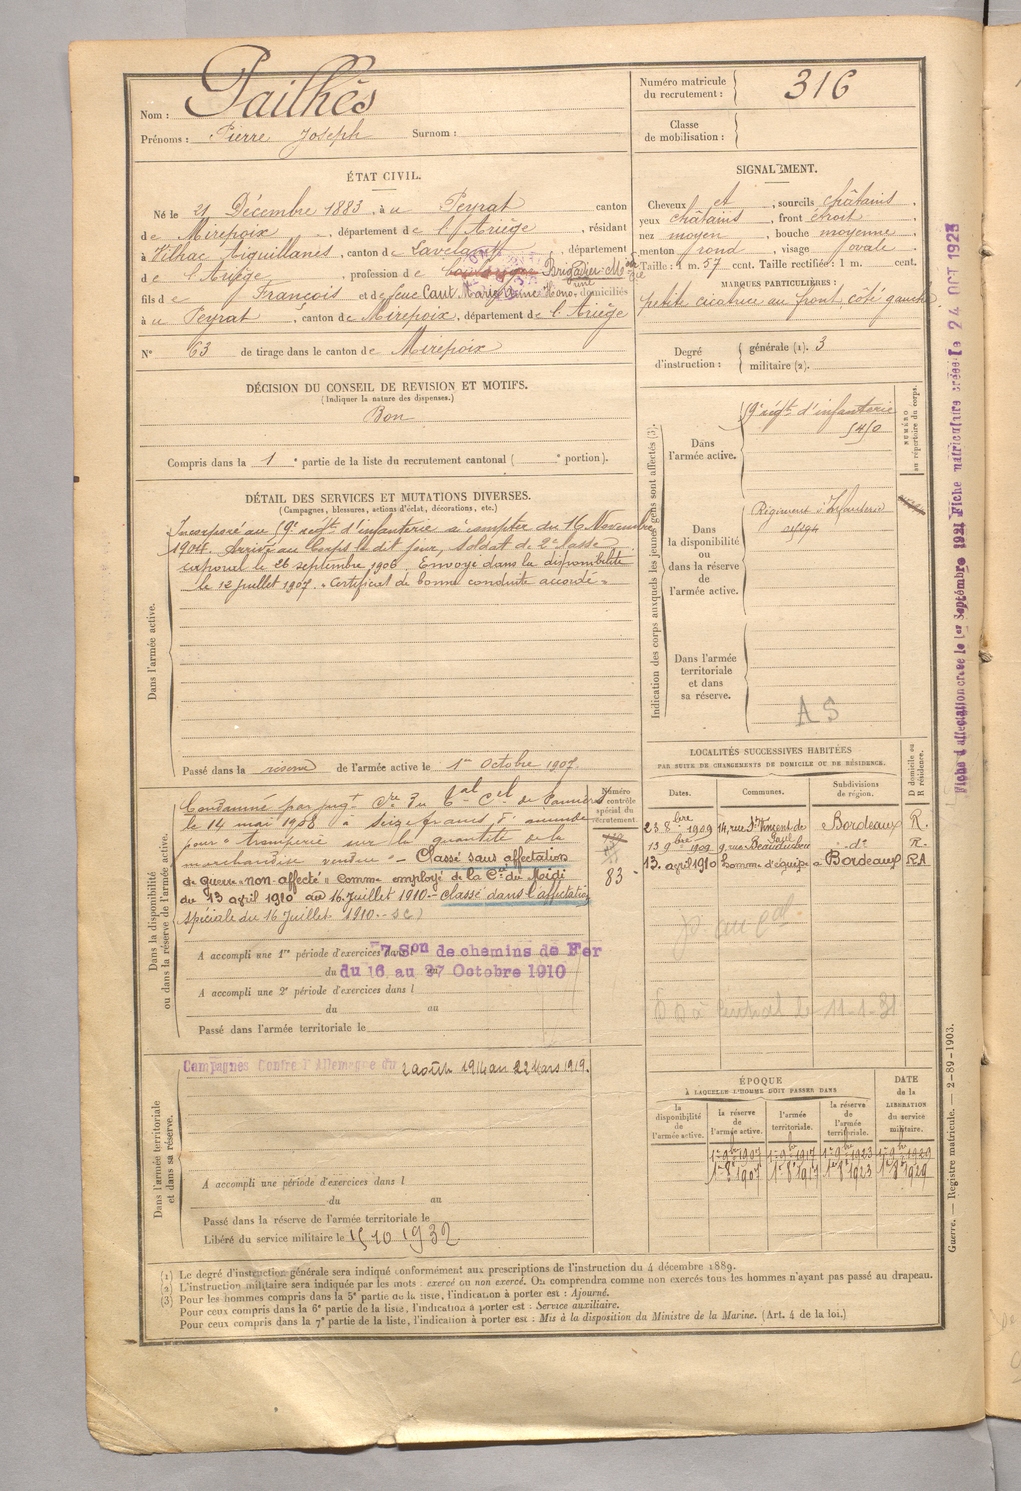 Nom : Pailhès
Prénoms : Pierre Joseph Surnom :
Numéro matricule du recrutement : 316
Classe de mobilisation :
ÉTAT CIVIL.
Né le 21 Décembre 1883, à u Peyrat canton
de Mirepoix, département de l'Ariège, résidant
à Vilhac Aiguillanes, canton de Lavelanet, département
de l'Ariège, profession de Brigadier
fils de François et de feue Caut Marie Anne domiciliés
à u Peyrat, canton de Mirepoix, département de l'Ariège
N° 63 de tirage dans le canton de Mirepoix
SIGNALEMENT.
Cheveux et, sourcils châtains,
yeux châtains, front étroit,
nez moyen, bouche moyenne
menton rond, visage ovale
Taille : 1 m. 57 cent. Taille rectifiée : 1 m. cent.
MARQUES PARTICULIÈRES :
petite cicatrice au front côté gauche
Degré d'instruction : générale (1). 3
militaire (2).
DÉCISION DU CONSEIL DE REVISION ET MOTIFS.
(Indiquer la nature des dispenses.)
Bon
Compris dans la 1e partie de la liste du recrutement cantonal ( e portion).
DÉTAIL DES SERVICES ET MUTATIONS DIVERSES.
(Campagnes, blessures, actions d'éclat, décorations, etc.)
Dans l'armée active.
Incorporé au 59e régt d'infanterie à compter du 16 Novembre
1904. Arrivé au Corps le dit jour, soldat de 2e classe
caporal le 26 septembre 1906. Envoyé dans la disponibilité
le 12 juillet 1907. Certificat de bonne conduite accordé
Passé dans la réserve de l'armée active le 1er Octobre 1907.
Indication des corps auxquels les jeunes gens sont affectés (3).
NUMÉRO au répertoire du corps.
Dans l'armée active.
59e régt d'infanterie
5410
Dans la disponibilité ou dans la réserve de l'armée active.
Régiment d'Infanterie
Dans l'armée territoriale et dans sa réserve.
AS
Dans la disponibilité ou dans la réserve de l'armée active.
Condamné par jugt Cre du Tal Cel de Pamiers
le 14 mai 1908 à seize francs d'amende
pour « tromperie sur la quantité de la
marchandise vendue » - Classé sans affectation
de guerre « non affecté » comme employé de la Cie du Midi
du 13 avril 1910 au 16 Juillet 1910 - classé dans l'affectation
spéciale du 16 Juillet 1910 -
Numéro au contrôle spécial du recrutement.
83
A accompli une 1re période d'exercices dans l 7 Son de chemins de Fer
du du 16 au 27 Octobre 1910
A accompli une 2e période d'exercices dans l
du au
Passé dans l'armée territoriale le
LOCALITÉS SUCCESSIVES HABITÉES
PAR SUITE DE CHANGEMENTS DE DOMICILE OU DE RÉSIDENCE.
Dates. Communes. Subdivisions de région. D domicile ou R résidence.
23 8bre 1909 14, rue St Vincent de Paul Bordeaux R.
13 9bre 1909 9, rue Beauduchen do R.
13 avril 1910 homme d'équipe à Bordeaux RA
11-1-31
Dans l'armée territoriale et dans sa réserve.
Campagnes Contre l'Allemagne du 2 août 1914 au 22 Mars 1919.
A accompli une période d'exercices dans l
du au
Passé dans la réserve de l'armée territoriale le
Libéré du service militaire le 15 10 1932
ÉPOQUE
À LAQUELLE L'HOMME DOIT PASSER DANS
DATE de la LIBÉRATION du service militaire.
la disponibilité de l'armée active. la réserve de l'armée active. l'armée territoriale. la réserve de l'armée territoriale.
1er 9bre 1907 1er 9bre 1917 1er 9bre 1923 1er 9bre 1929
1er 8e 1907 1er 8e 1917 1er 8e 1923 1er 8e 1929
(1) Le degré d'instruction générale sera indiqué conformément aux prescriptions de l'instruction du 4 décembre 1889.
(2) L'instruction militaire sera indiquée par les mots : exercé ou non exercé. On comprendra comme non exercés tous les hommes n'ayant pas passé au drapeau.
(3) Pour les hommes compris dans la 5e partie de la liste, l'indication à porter est : Ajourné.
Pour ceux compris dans la 6e partie de la liste, l'indication à porter est : Service auxiliaire.
Pour ceux compris dans la 7e partie de la liste, l'indication à porter est : Mis à la disposition du Ministre de la Marine. (Art. 4 de la loi.)
Fiche d'affectation créée le 1er Septembre 1921 Fiche matriculaire créée le 24 OCT 1923
Guerre. — Registre matricule. — 2-89-1903.